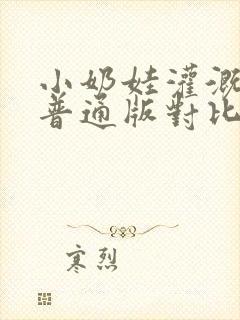 小奶娃灌溉
普通版對比
寒烈